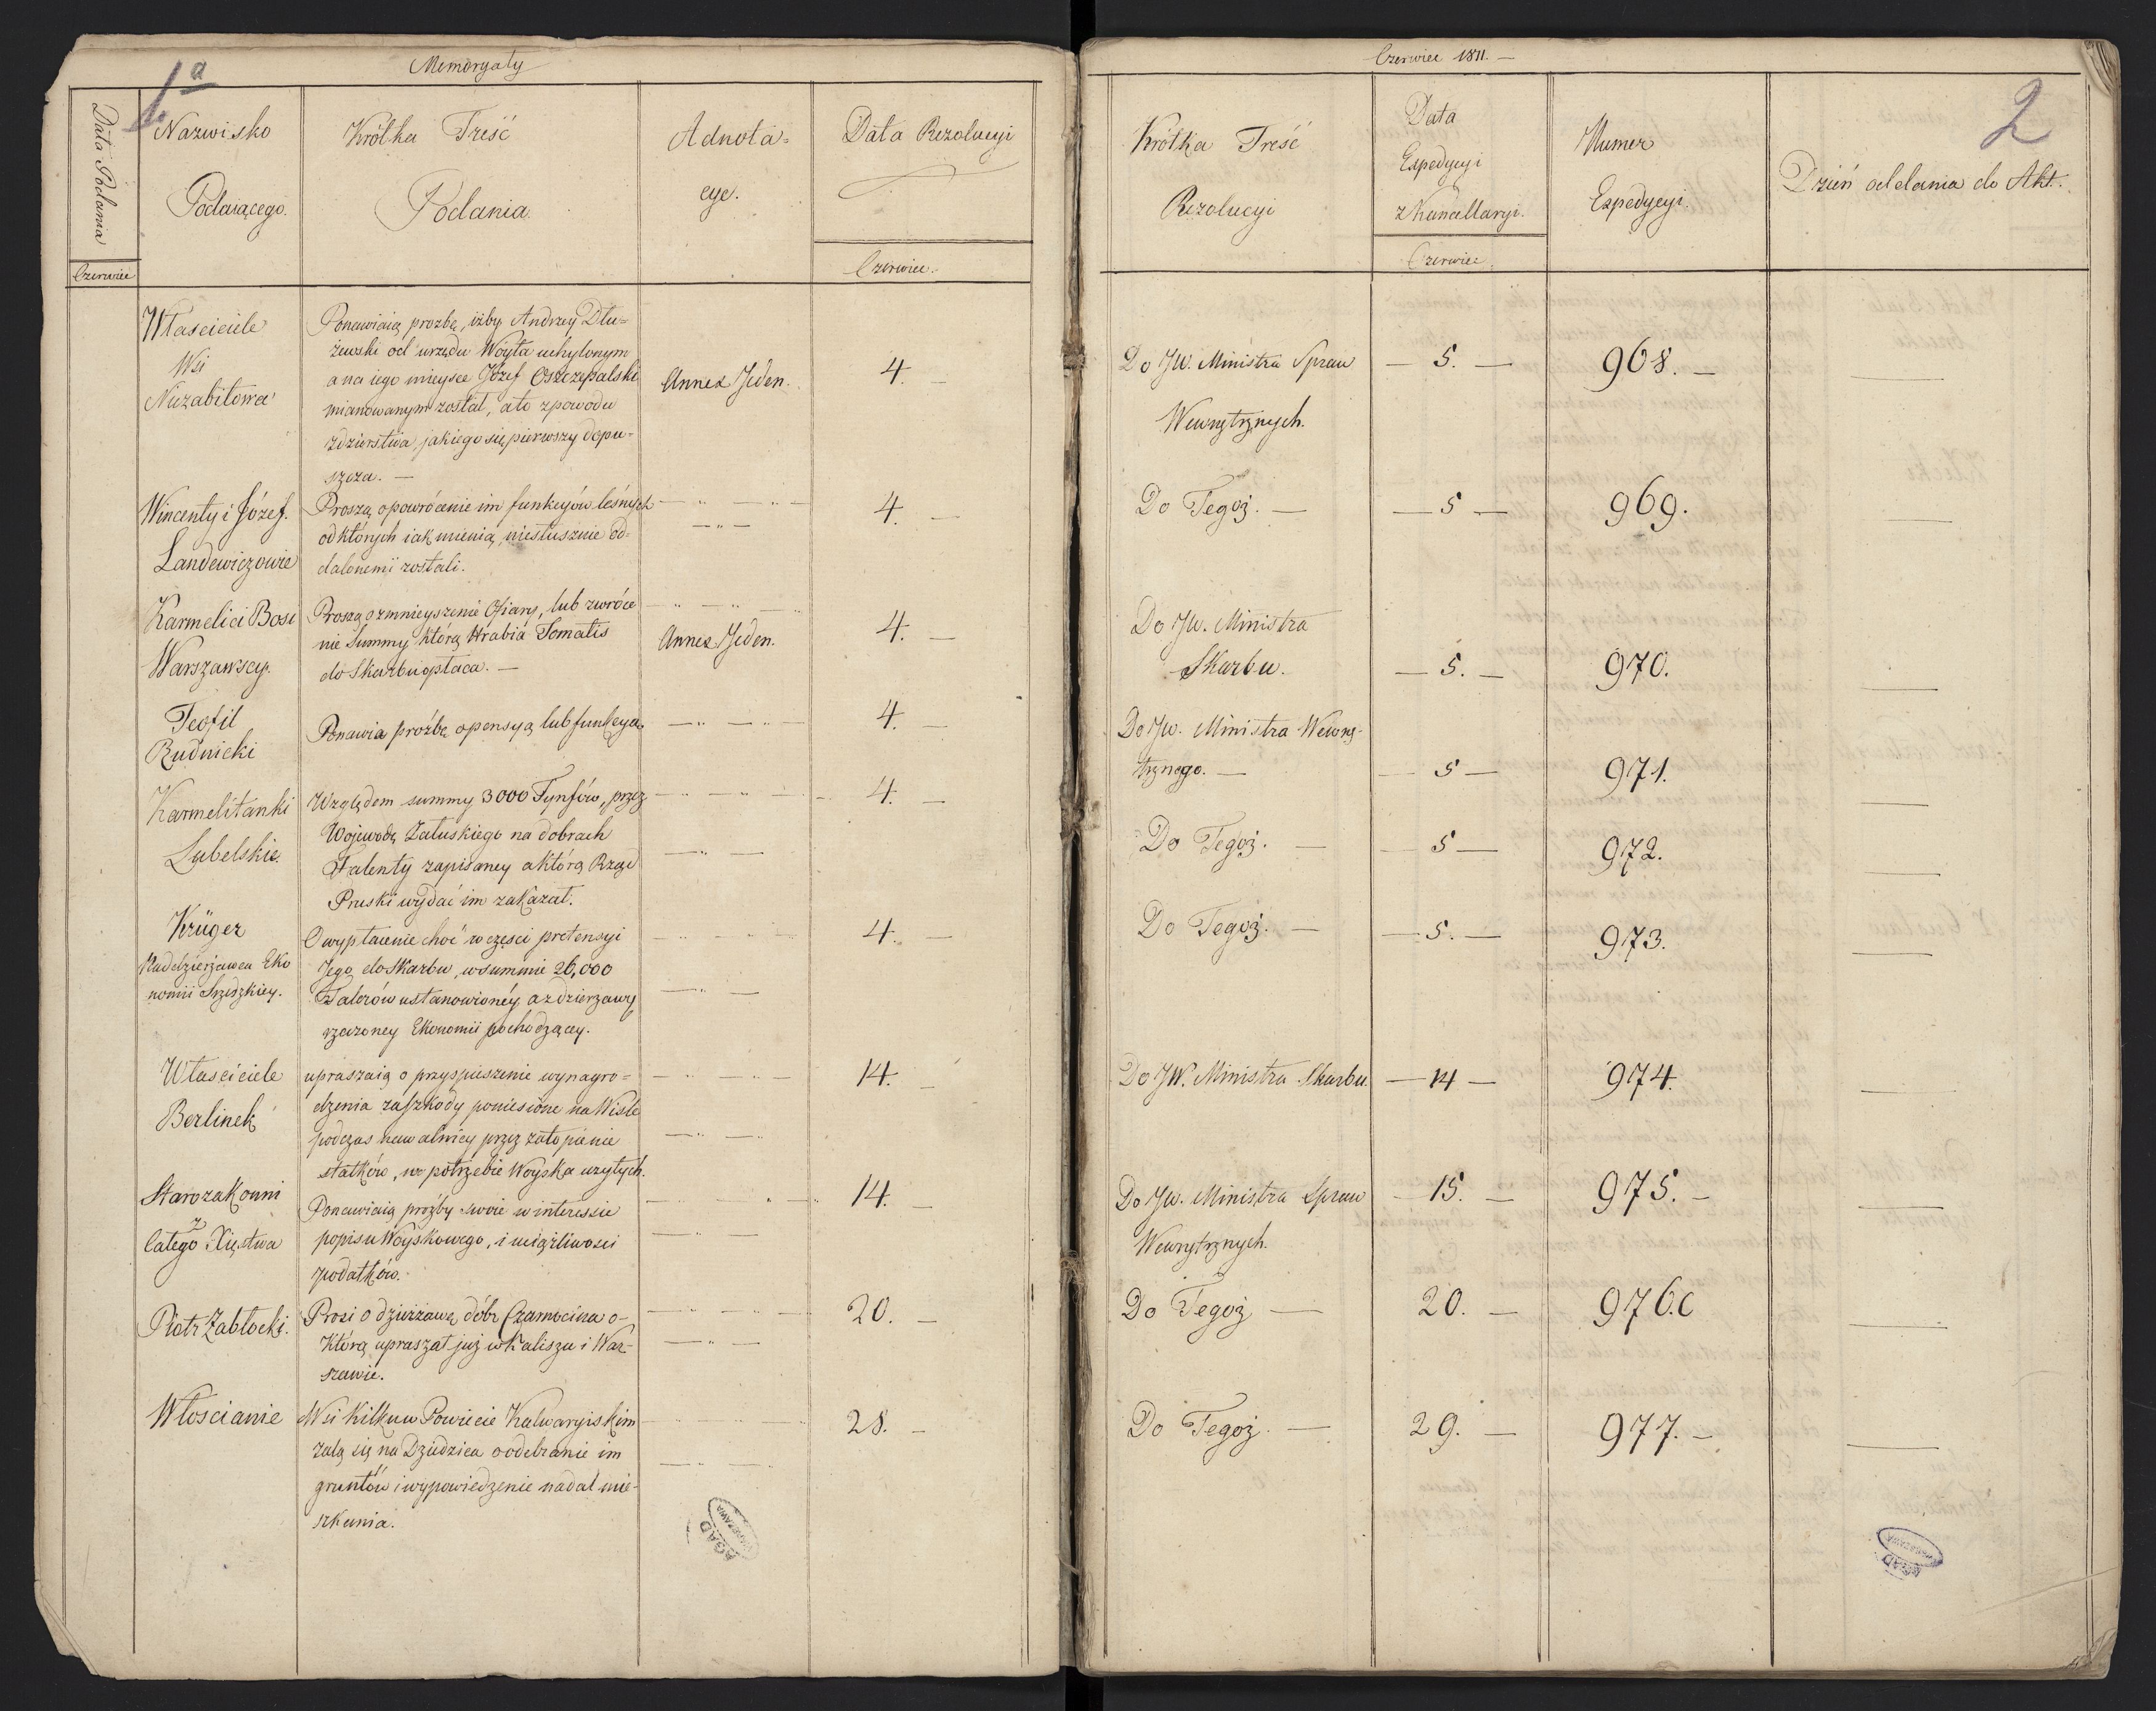 Memoryały
1a
Data Podania
Nazwisko
Podaiącego.
Krótka Treść
Podania.
Adnota=
cye.
Data Rezolucyi
Czerwiec
Czerwiec.
Właściciele
Wsi
Niezabitowa
Ponawiaią prozbę, iżby Andrzey Dłu=
żewski od urzędu Woyta uchylonym
a na iego mieysce Józef Oszczepalski
mianowanym został, a to z powodu
zdzierstwa, jakiego się pierwszy dopu=
szcza. —
Annex Jeden.
4. —
Wincenty i Józef.
Landewiczowie
Proszą o powrócenie im funkcyów leśnych
od których iak mienią, niesłusznie od=
dalonemi zostali.
4. —
Karmelici Bosi
Warszawscy.
Proszą o zmnieyszenie Ofiary, lub zwróce
nie Summy którą Hrabia Tomatis
do Skarbu opłaca. —
Annex Jeden.
4. —
Teofil
Rudnicki
Ponawia proźbę o pensyą lub funkcyą.
4. —
Karmelitanki
Lubelskie.
Względem summy 3000 Tynfów, przez
Wojewodę Załuskiego na dobrach
Falenty zapisaney a którą Rząd
Pruski wydać im zakazał.
4. —
Krüger
Naddzierżawca Eko
nomii
O wypłacenie choć w części pretensyi
Jego do Skarbu, w summie 26,000
Talerów ustanowionéy, a z dzierzawy
rzeczoney Ekonomii pochodzącey.
4. —
Właściciele
Berlinek
upraszaią o przyspieszenie wynagro=
dzenia za szkody poniesione na Wiśle
podczas nawalnicy przez zatopienie
statków, w potrzebie Woyska użytych.
14. —
Starozakonni
z
całego Xięstwa
Ponawiaią prozby swoie w interessie
popisu Woyskowego, i uciążliwosci
podatków.
14. —
Piotr Zabłocki.
Prosi o dzierżawę dóbr Czarnocina o-
którą upraszał już w Kaliszu i War-
szawie.
20. —
Włoscianie
Wsi kilku w Powiecie Kalwaryiskim
żalą się na Dziedzica o odebranie im
gruntów i wypowiedzenie nadal mie-
szkania.
28. —
AGAD
WARSZAWA
Czerwiec 1811. —
2
Krótka Treść
Rezolucyi
Data
Expedycyi
z Kancellaryi.
Czerwiec.
Numer
Expedycyi.
Dzień oddania do Akt.
Do JW. Ministra Spraw
Wewnętrznych.
— 5. —
968. —
Do Tegoż. —
— 5 —
969.
Do JW. Ministra
Skarbu.
— 5. —
970.
Do JW. Ministra Wewnę-
trznego. —
— 5 —
971.
Do Tegoż. —
— 5 —
972.
Do Tegoż. —
— 5. —
973.
Do JW. Ministra Skarbu.
— 14 —
974.
Do JW. Ministra Spraw
Wewnętrznych.
— 15. —
975. —
Do Tegoż —
20. —
976.c
Do Tegoż. —
29. —
977. —
AGAD
WARSZAWA